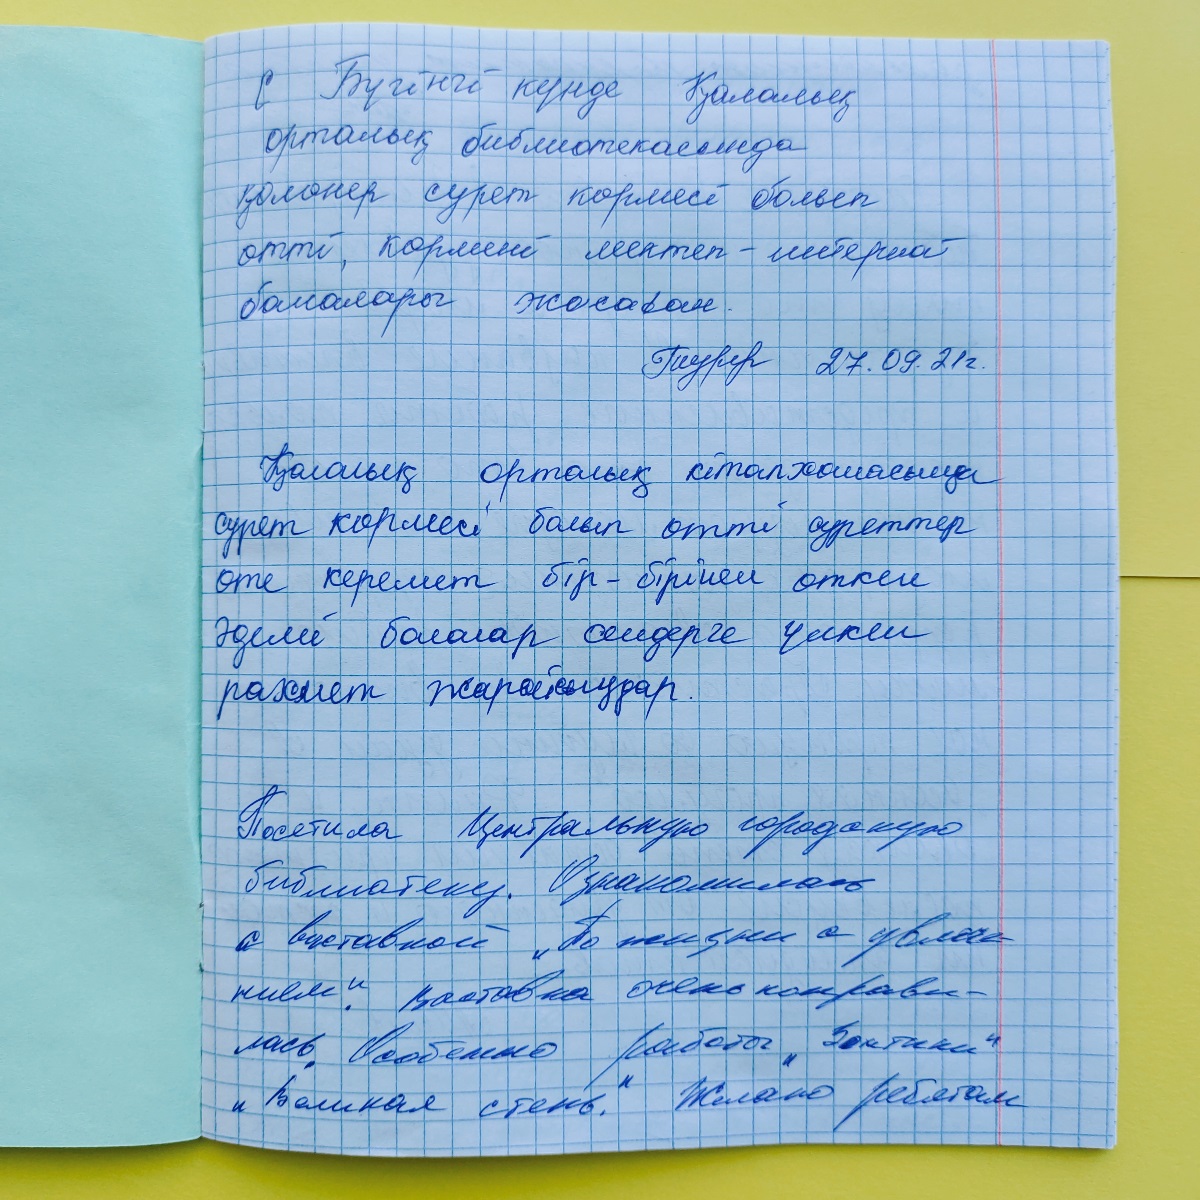 Бүгінгі күнде Қалалық
орталық библиотекасында
қолөнер сурет кормесі болып
отті, кормені мектеп-интернат
балалары жасаған.
27.09.21г.
Қалалық орталық кітапханасында
сурет кормесі болып отті суреттер
оте керемет бір-бірінен откен
әдемі балалар сендерге үлкен
рахмет жарайсыңдар.
Посетила Центральную городскую
библиотеку. Ознакомилась
с выставкой „По жизни с увлече-
нием". Выставка очень понрави-
лась. Особенно работы „Зонтики"
„Великая степь." Желаю ребятам